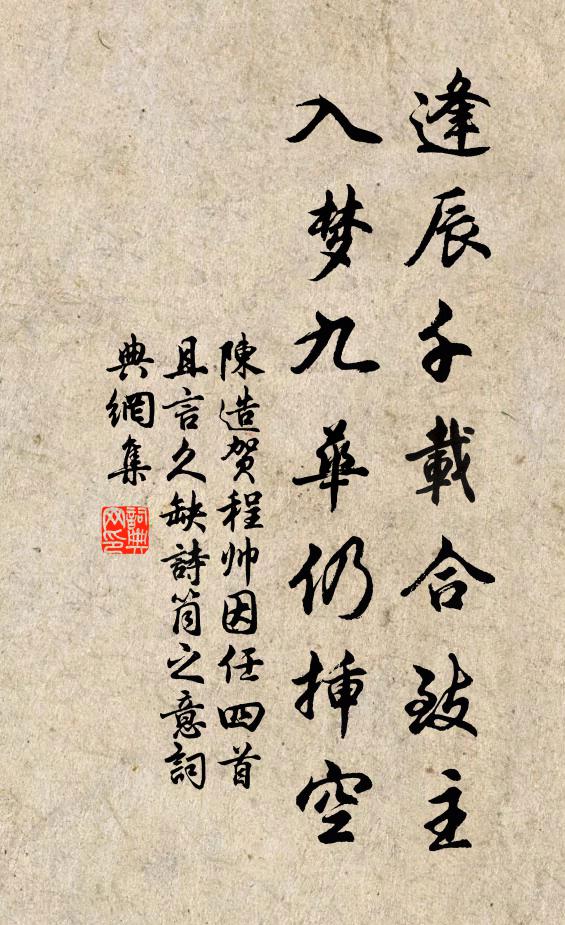 逢辰千載合致主
入梦九華仍挿空
陳造贺程帅因任四首
且言久缺詩筒之意詞
典網集
詞典
网印